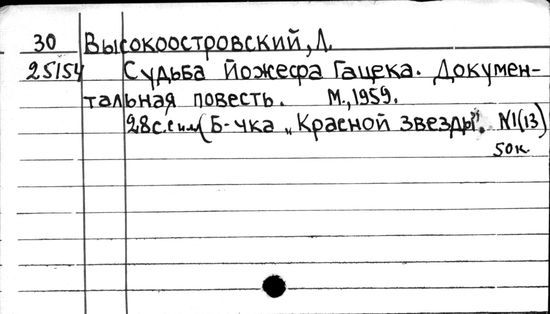 30 Высокоостровский, Л.
25154 Судьба Йожефа Гацека. Докумен-
тальная повесть. М., 1959.
28с. с илл (Б-чка „Красной звезды". №1(13)
50к.